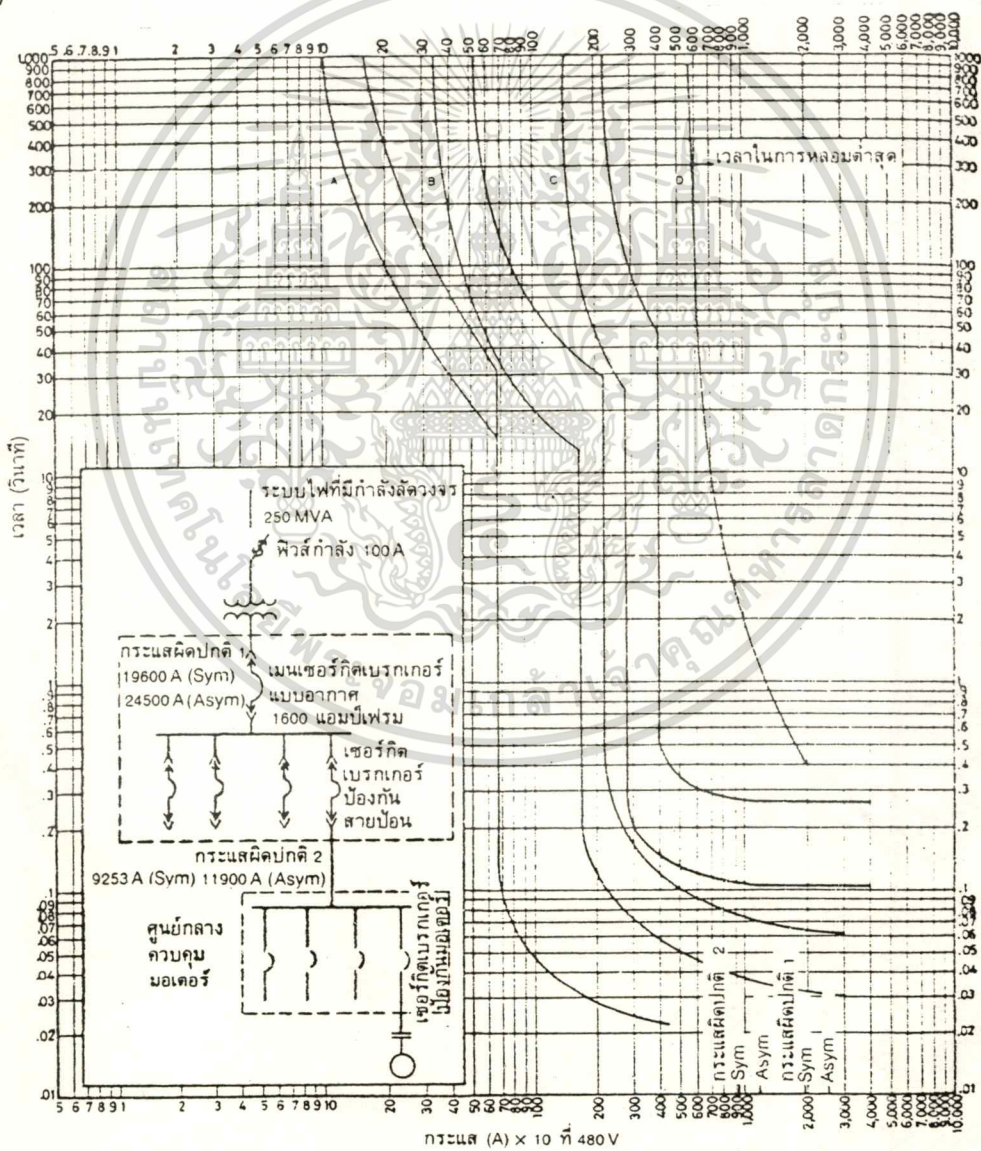 5 .6 .7 .8 .9 1 2 3 4 5 6 7 8 9 10 20 30 40 50 60 70 80 90 100 200 300 400 500 600 700 800 900 1,000 2,000 3,000 4,000 5,000 6,000 7,000 8,000 9,000 10,000
1,000
900
800
700
600
500
400
300
200
100
90
80
70
60
50
40
30
20
10
9
8
7
6
5
4
3
2
.1
.9
.8
.7
.6
.5
.4
.3
.2
.1
.09
.08
.07
.06
.05
.04
.03
.02
.01
เวลา (วินาที)
A
B
C
D
เวลาในการหลอมต่ำสุด
ระบบไฟที่มีกำลังลัดวงจร
250 MVA
ฟิวส์กำลัง 100 A
กระแสผิดปกติ 1
19600 A (Sym)
24500 A (Asym)
เมนเซอร์กิตเบรกเกอร์
แบบอากาศ
1600 แอมป์เฟรม
เซอร์กิต
เบรกเกอร์
ป้องกัน
สายป้อน
กระแสผิดปกติ 2
9253 A (Sym) 11900 A (Asym)
ศูนย์กลาง
ควบคุม
มอเตอร์
เซอร์กิตเบรกเกอร์
ป้องกันมอเตอร์
กระแสผิดปกติ 2
Sym
Asym
กระแสผิดปกติ 1
Sym
Asym
1,000
900
800
700
600
500
400
300
200
100
90
80
70
60
50
40
30
20
10
9
8
7
6
5
4
3
2
.1
.9
.8
.7
.6
.5
.4
.3
.2
.1
.09
.08
.07
.06
.05
.04
.03
.02
.01
5 6 7 8 9 1 2 3 4 5 6 7 8 9 10 20 30 40 50 60 70 80 90 100 200 300 400 500 600 700 800 900 1,000 2,000 3,000 4,000 5,000 6,000 7,000 8,000 9,000 10,000
กระแส (A) × 10 ที่ 480 V